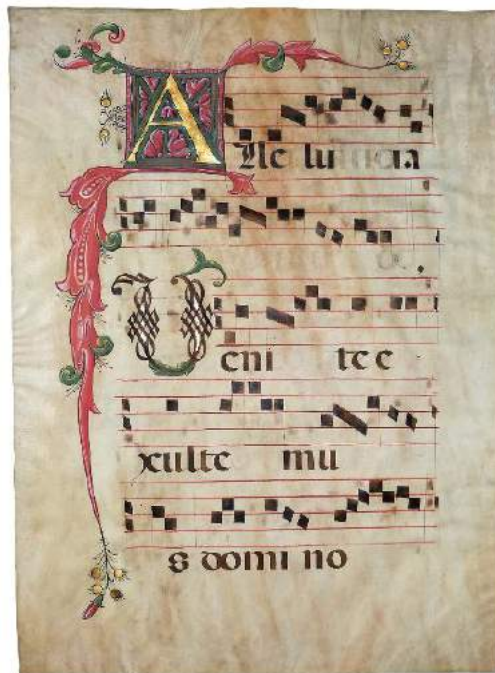 Alle lu ia
Veni te e
xulte mu
s domi no